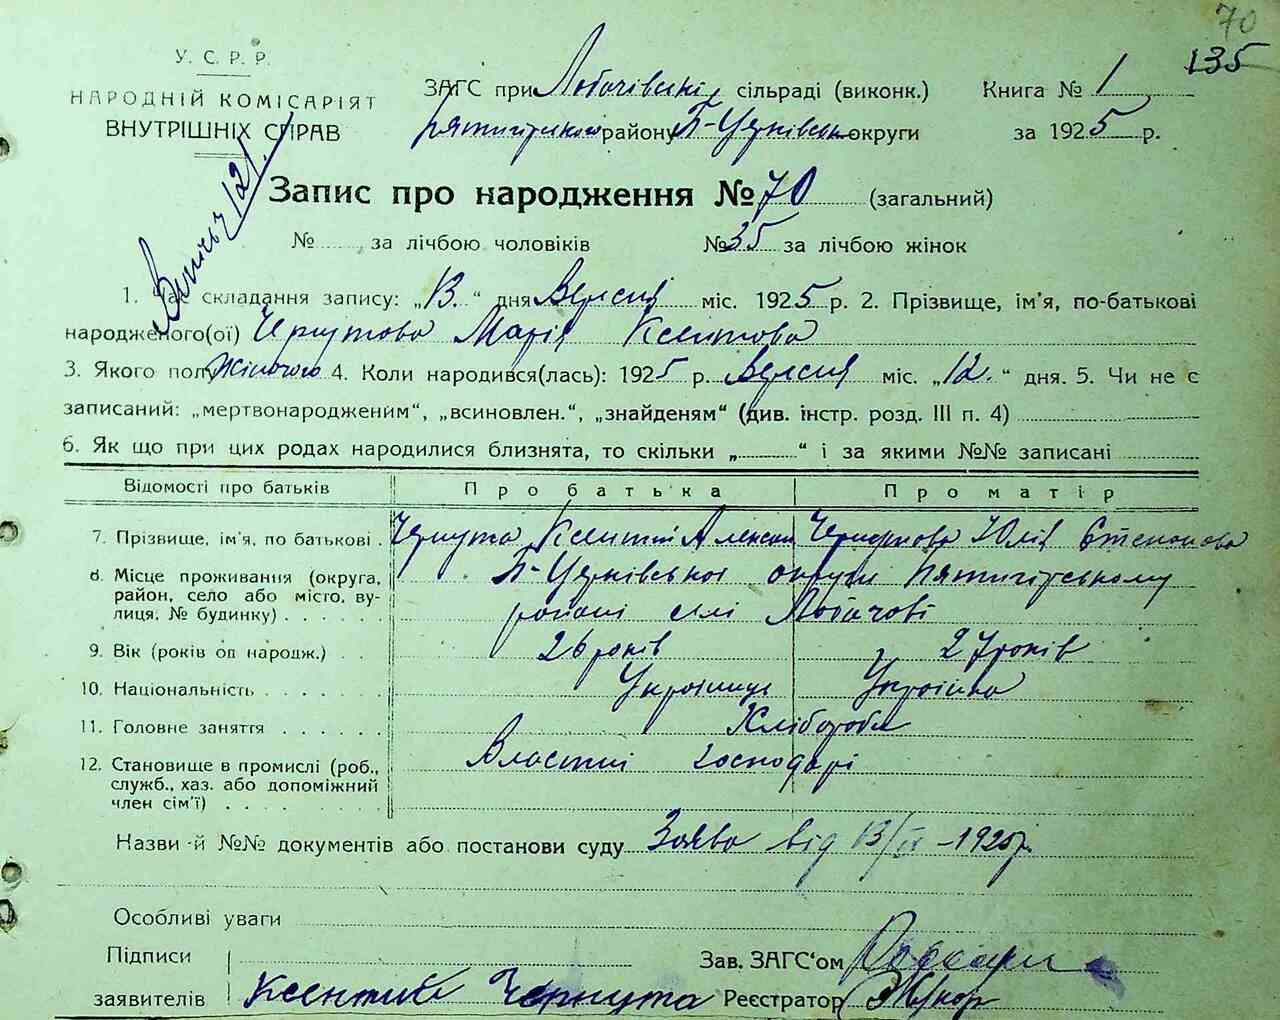 70
135
У. С. Р. Р.
НАРОДНІЙ КОМІСАРІЯТ
ВНУТРІШНІХ СПРАВ
ЗАГС при Лобачівські сільраді (виконк.) Книга № 1
району Б-Церківськ округи за 1925 р.
Запис про народження № 70 (загальний)
№ за лічбою чоловіків № 35 за лічбою жінок
1. Час складання запису: „13.“ дня Вересня міс. 1925 р. 2. Прізвище, ім'я, по-батькові
народженого(ої) Чернутова Марія Ксентова
3. Якого полу Жіночого 4. Коли народився(лась): 1925 р. Вересня міс. „12.“ дня. 5. Чи не є
записаний: „мертвонародженим“, „всиновлен.“, „знайденям“ (див. інстр. розд. III п. 4)
6. Як що при цих родах народилися близнята, то скільки „ “ і за якими №№ записані
Відомості про батьків Про батька Про матір
7. Прізвище, ім'я, по батькові Чернута Ксентій Алексан Юлія Степанова
8. Місце проживання (округа, Б-Церківської округи Пятигірському
район, село або місто, ву-
лиця, № будинку) районі селі Лобачові
9. Вік (років од народж.) 26 років 27 років
10. Національність Українець Українка
11. Головне заняття Хлібороби
12. Становище в промислі (роб., Властні господарі
служб., хаз. або допоміжний
член сім'ї)
Назви й №№ документів або постанови суду Заява від 13/IX-1925р.
Особливі уваги
Підписи Зав. ЗАГС'ом
заявителів Ксентий Чернута Реєстратор